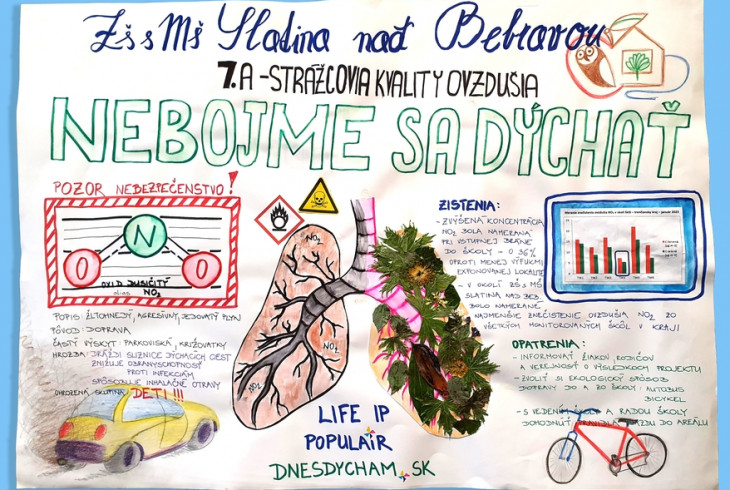 ZŠ s MŠ Slatina nad Bebravou
7.A - STRÁŽCOVIA KVALITY OVZDUŠIA
NEBOJME SA DÝCHAŤ
POZOR NEBEZPEČENSTVO!
N
O O
OXID DUSIČITÝ
NO₂
POPIS: ŽLTOHNEDÝ, AGRESÍVNY, JEDOVATÝ PLYN
PÔVOD: DOPRAVA
ČASTÝ VÝSKYT: PARKOVISKÁ, KRIŽOVATKY
HROZBA: DRÁŽDI SLIZNICE DÝCHACÍCH CIEST
ZNIŽUJE OBRANYSCHOPNOSŤ
PROTI INFEKCIÁM
SPÔSOBUJE INHALAČNÉ OTRAVY
OHROZENÁ SKUPINA: DETI!!!
NO₂
NO₂
NO₂
LIFE IP
POPULAIR
DNESDYCHAM.SK
ZISTENIA:
- ZVÝŠENÁ KONCENTRÁCIA
NO₂ BOLA NAMERANÁ
PRI VSTUPNEJ BRÁNE
DO ŠKOLY - O 36%
OPROTI MENEJ VÝFUKMI
EXPONOVANEJ LOKALITE
- V OKOLÍ ZŠ S MŠ
SLATINA NAD BEB.
BOLO NAMERANÉ
NAJMENŠIE ZNEČISTENIE OVZDUŠIA NO₂ ZO
VŠETKÝCH MONITOROVANÝCH ŠKÔL V KRAJI
OPATRENIA:
- INFORMOVAŤ ŽIAKOV, RODIČOV
A VEREJNOSŤ O VÝSLEDKOCH PROJEKTU
- ZVOLIŤ SI EKOLOGICKÝ SPÔSOB
DOPRAVY DO A ZO ŠKOLY: AUTOBUS
BICYKEL
- S VEDENÍM ŠKOLY A RADOU ŠKOLY
DOHODNÚŤ PRAVIDLÁ VJAZDU DO AREÁLU